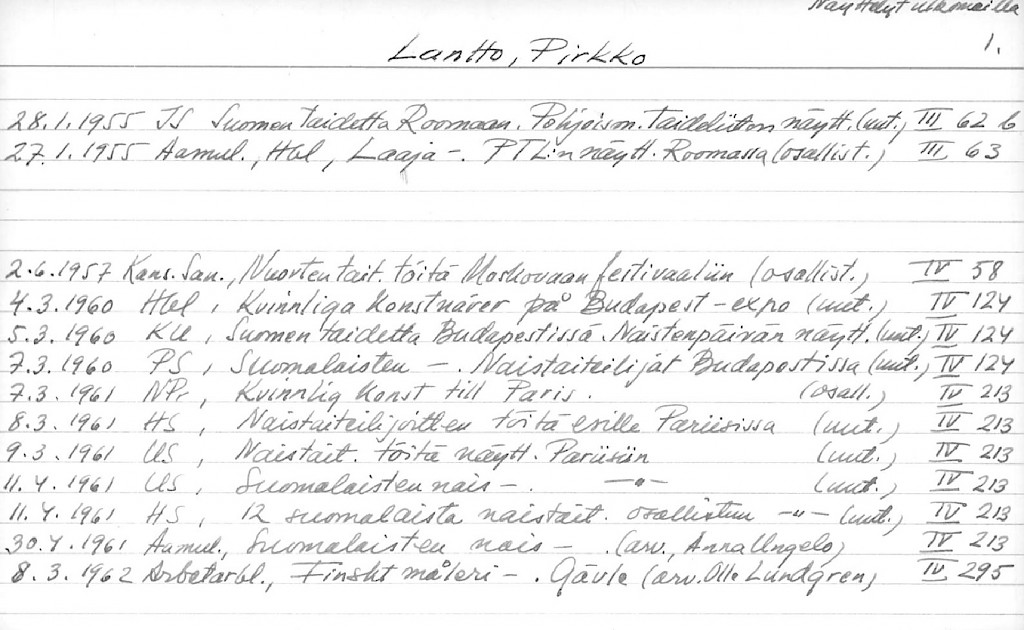 Näyttelyt ulkomailla
1.
Lantto, Pirkko
28.1.1955 IS Suomen taidetta Roomaan. Pohjoism. taideliiton näytt. (uut.) III 62 b
27.1.1955 Aamul., Hbl, Laaja -. PTL:n näytt. Roomassa (osallist.) III 63
2.6.1957 Kans. San., Nuorten tait. töitä Moskovaan festivaaliin (osallist.) IV 58
4.3.1960 Hbl, Kvinnliga konstnärer på Budapest-expo (uut.) IV 124
5.3.1960 KU, Suomen taidetta Budapestissä. Naistenpäivän näytt. (uut.) IV 124
7.3.1960 PS, Suomalaisten -. Naistaiteilijat Budapestissa (uut.) IV 124
7.3.1961 NPr, Kvinnlig konst till Paris. (osall.) IV 213
8.3.1961 HS, Naistaiteilijoitten töitä esille Pariisissa (uut.) IV 213
9.3.1961 US, Naistait. töitä näytt. Pariisiin (uut.) IV 213
11.4.1961 US, Suomalaisten nais-. -"- (uut.) IV 213
11.4.1961 HS, 12 suomalaista naistait. osallistuu -"- (uut.) IV 213
30.4.1961 Aamul., Suomalaisten nais- . (arv., Anna Ungelo) IV 213
8.3.1962 Arbetarbl., Finskt måleri -. Gävle (arv. Olle Lundgren) IV 295